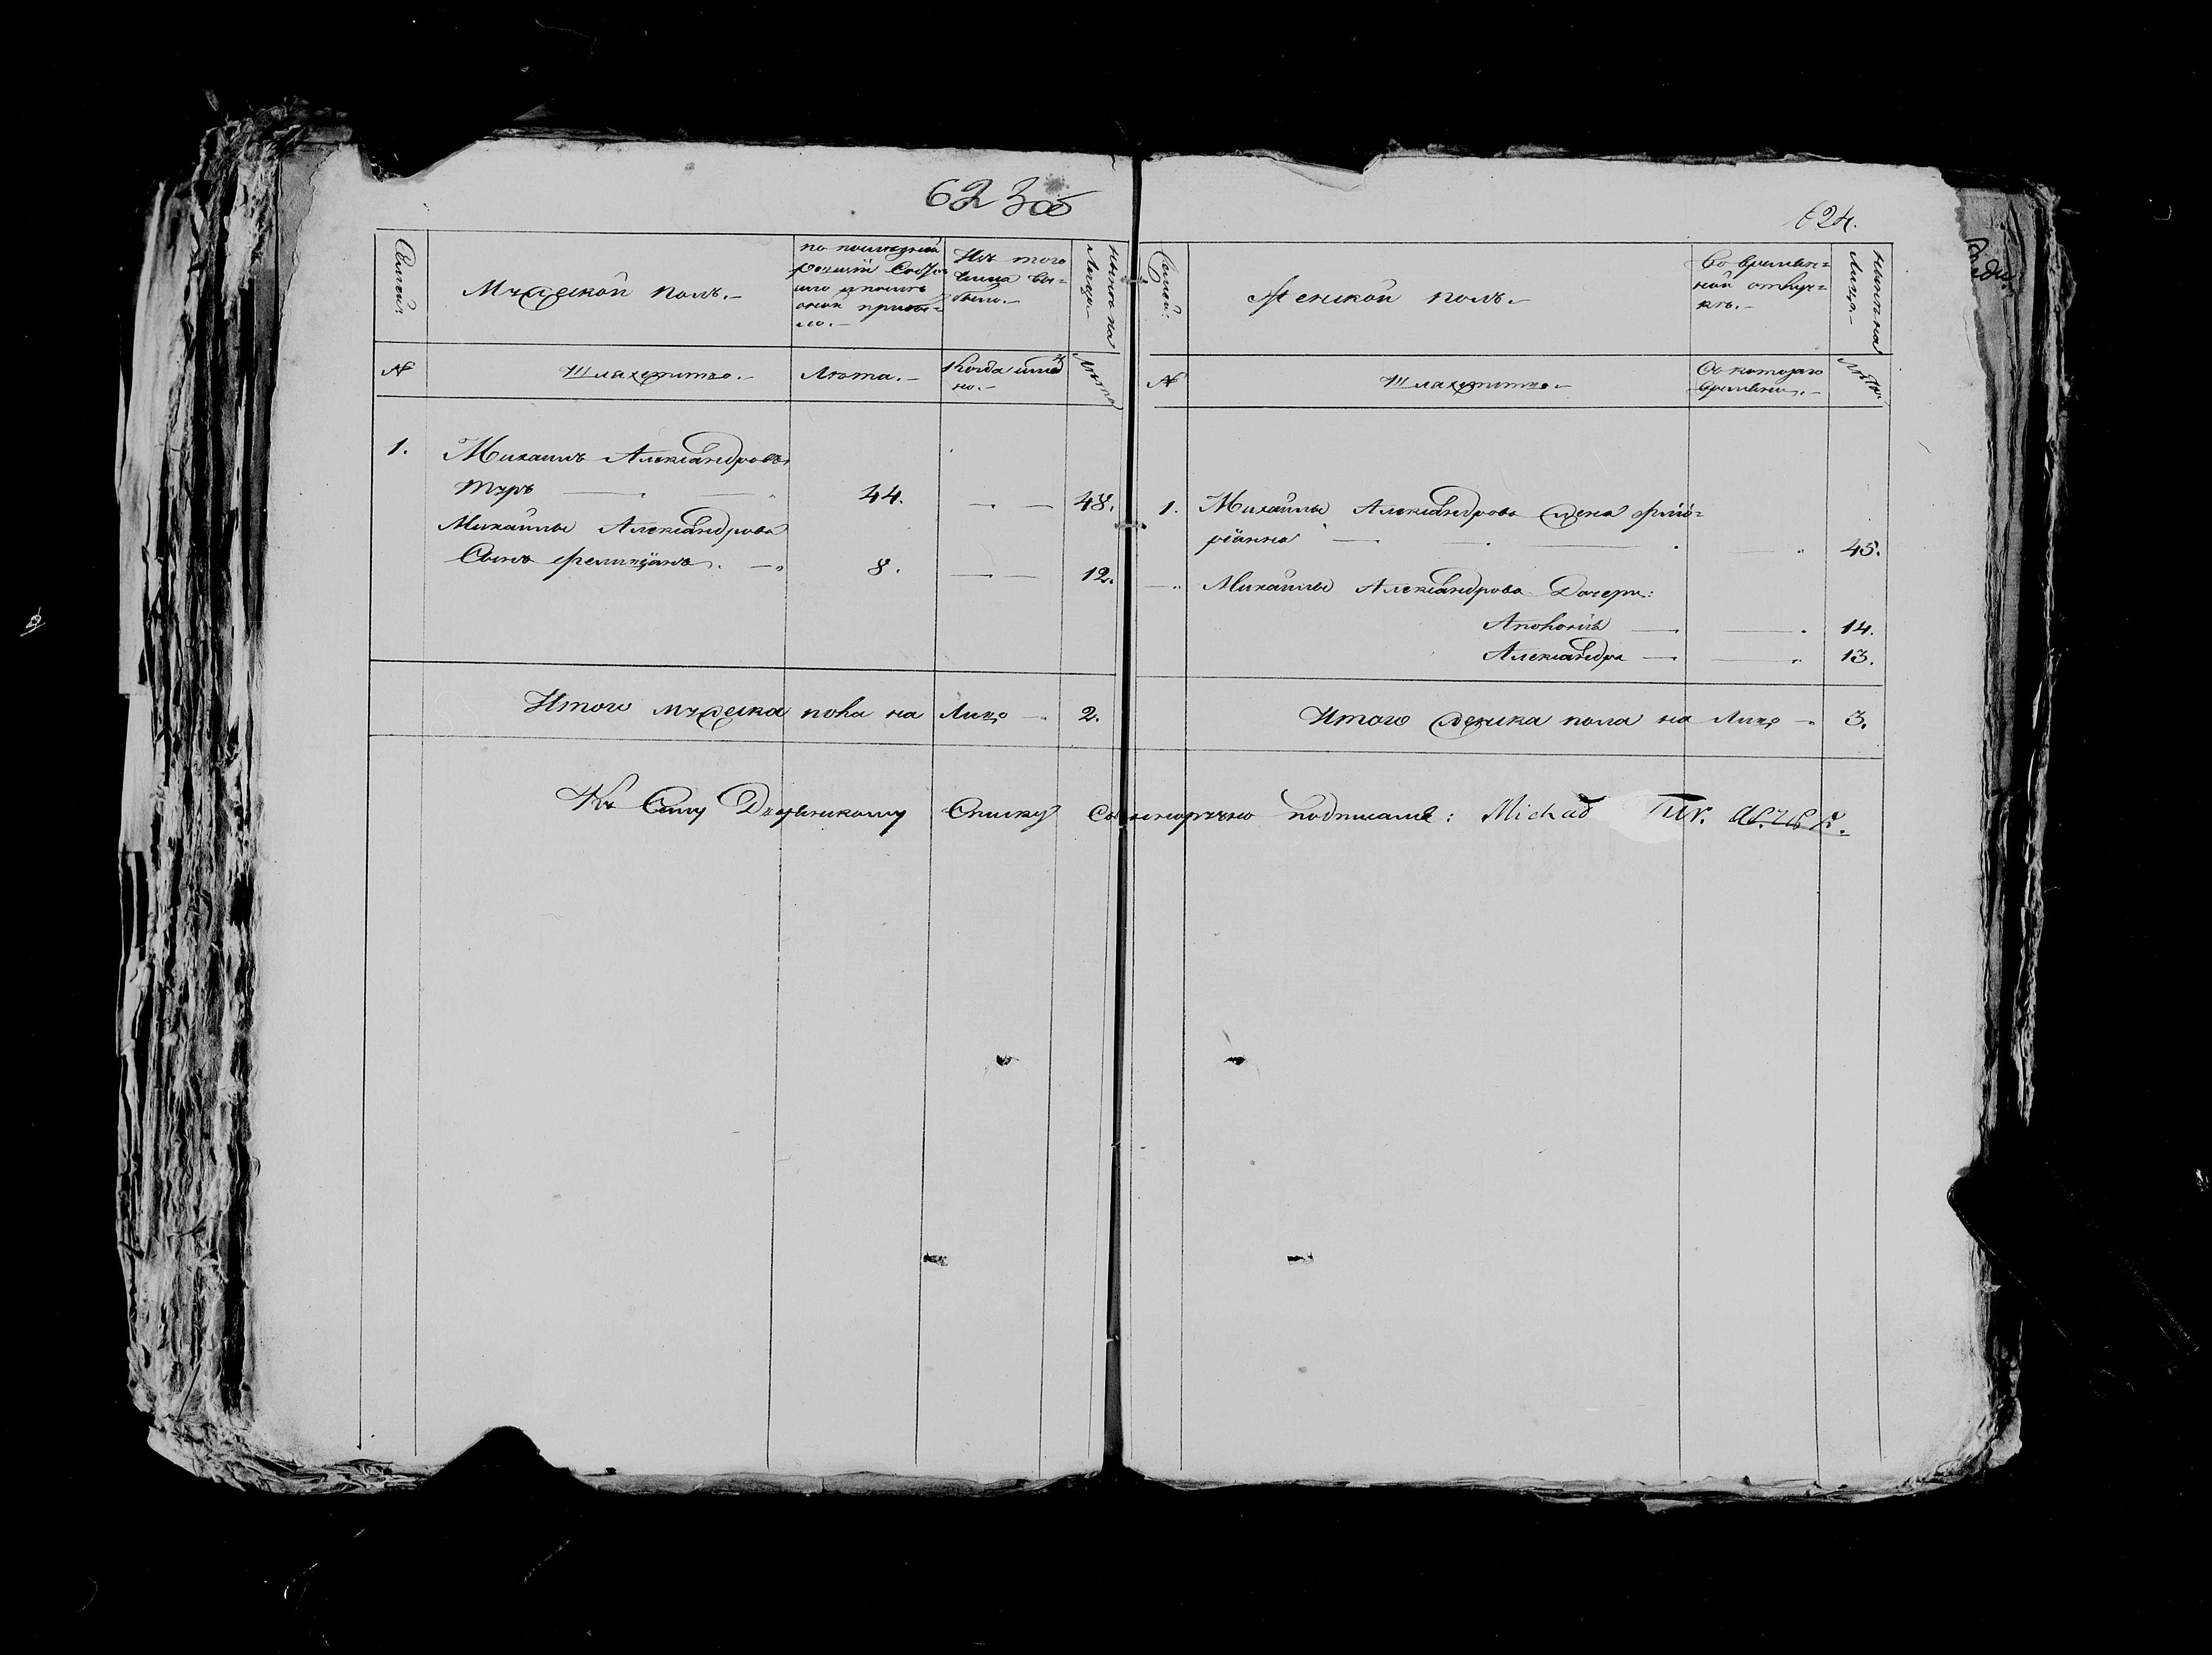 623 об
624.
Семьи.
Мужеской полъ.-
по последней
ревизіи состоя-
ло и после
оной прибы-
ло.-
Изъ того
числа вы-
было.-
Ныне на
Лицо.-
№
Шляхетство.-
Лета.-
Когда имен
но.-
Лета
1.
Михаилъ Александровъ
Туръ
44.
48.
Михаилы Александрова
Сынъ Фелиціанъ.
8.
12.
Итого мужеска пола на Лицо
2.
Семьи.
Женской полъ.-
Во времен=
ной отлуч=
ке.-
Ныне на
Лицо.-
№
Шляхетство.-
Съ котораго
времени.-
Лета
1.
Михаилы Александрова жена Фло=
ріанна
45.
Михаилы Александрова Дочери:
Аполонія
14.
Александра
13.
Итого женска пола на Лицо
3.
Къ Сему Дворянскому Списку Собственноручно подписалъ: Michał Tur.